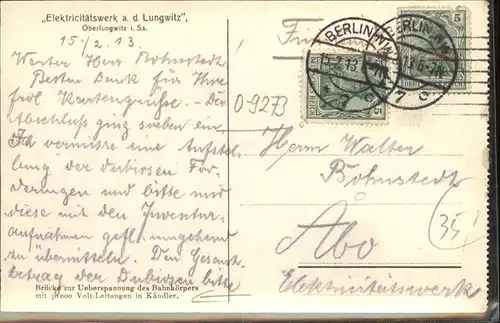 „Elektricitätswerk a. d. Lungwitz",
Oberlungwitz i. Sa.
15/2.13.
Werter Herr Bohnstedt
Besten Dank für Ihre
frdl. Kartengrüsse. Der
Abschluß ging soeben ein.
Ich vermisse eine Aufstel-
lung der dubiosen For-
derungen und bitte mir
diese mit den Inventur-
aufnahmen gefl. umgehend
zu übermitteln. Den Gesamt-
betrag der Dubiosen bitte
Brücke zur Ueberspannung des Bahnkörpers
mit 30000 Volt-Leitungen in Kändler.
0-9273
BERLIN NW
15.2.13
7
c
BERLIN NW
7
c
5
5
Herrn Walter
Bohnstedt
Åbo
Elektricitätswerk
35!